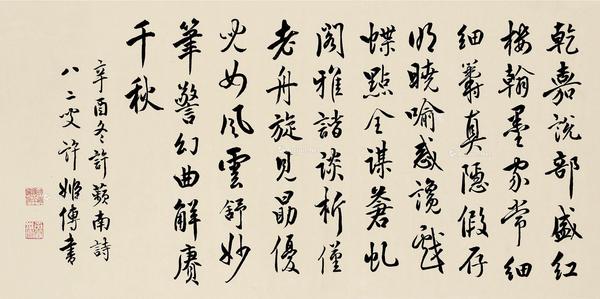 乾嘉說部盛紅
樓翰墨家常細
細籌真隱假存
明曉喻惑讒戲
蝶點全謀蒼虬
閣雅諧談析僅
老舟旋見勗優
兒女風雲舒妙
筆警幻曲解賡
千秋
辛酉冬許蘋南詩
八二叟許姬傳書